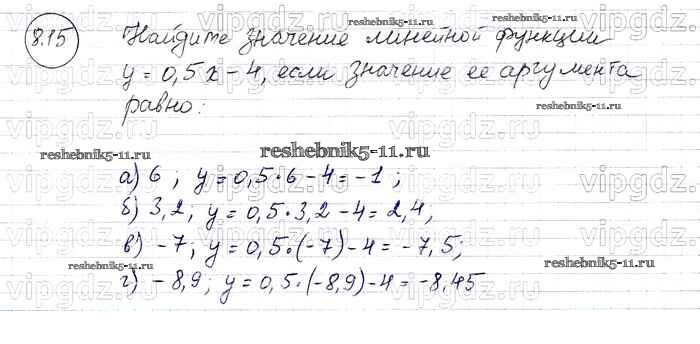 8.15 Найдите значение линейной функции
y = 0,5x - 4, если значение ее аргумента
равно:
reshebnik5-11.ru
а) 6 ; y = 0,5·6 - 4 = -1 ;
б) 3,2; y = 0,5·3,2 - 4 = 2,4;
в) -7; y = 0,5·(-7) - 4 = -7,5;
г) -8,9; y = 0,5·(-8,9) - 4 = -8,45